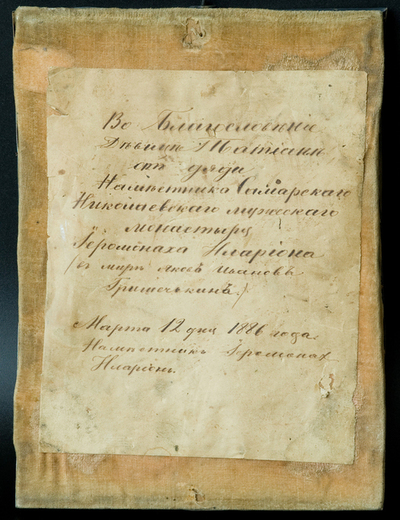 Во Благословенiе
Дѣвицѣ Татiанѣ
отъ дяди
Намѣстника Самарскаго
Николаевскаго мужескаго
монастыря
Iеромонаха Иларiона
(въ мирѣ Иванова
Гришечькина.)
Марта 12 дня 1886 года.
Намѣстникъ Iеромонахъ
Иларiонъ.